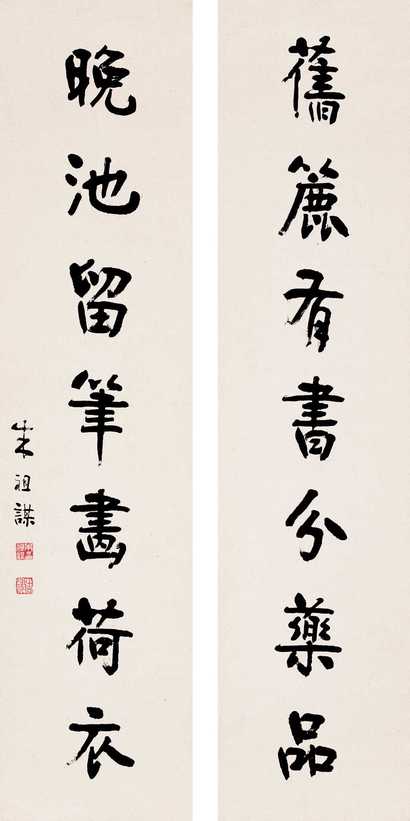 舊簏有書分藥品
晚池留筆畫荷衣
朱祖謀